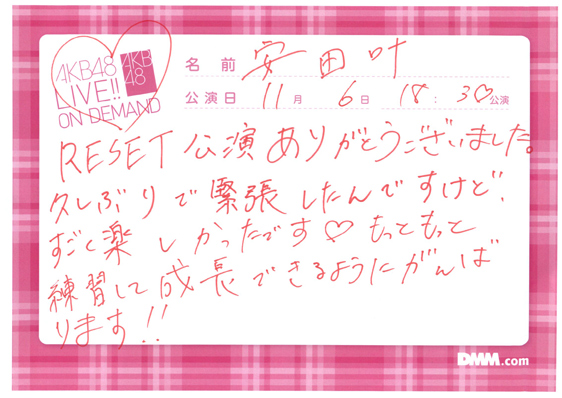 AKB48
LIVE!!
ON DEMAND
AKB
48
名前 安田叶
公演日 11月 6日 18:30♡公演
RESET公演ありがとうございました。
久しぶりで緊張したんですけど、
すごく楽しかったです♡もっともっと
練習して成長できるようにがんば
ります!!
DMM.com